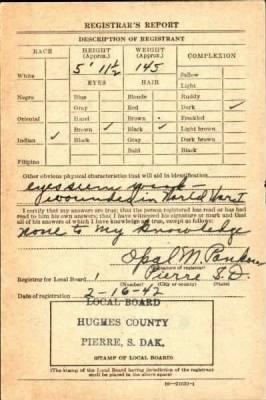 REGISTRAR'S REPORT
DESCRIPTION OF REGISTRANT
RACE HEIGHT (Approx.) WEIGHT (Approx.) COMPLEXION
White 5' 11½ 145 Sallow
EYES HAIR Light
Negro Blue Blonde Ruddy
Gray Red Dark ✓
Oriental Hazel Brown Freckled
Brown ✓ Black ✓ Light brown
Indian ✓ Black Gray Dark brown
Bald Black
Filipino
Other obvious physical characteristics that will aid in identification
wounded in World War I
I certify that my answers are true; that the person registered has read or has
had read to him his own answers; that I have witnessed his signature or mark and that
all of his answers of which I have knowledge are true, except as follows:
none to my knowledge
Opal M.
(Signature of registrar)
Registrar for Local Board 1 Pierre S.D.
(Number) (City or county) (State)
Date of registration 2-16-42
LOCAL BOARD
HUGHES COUNTY
PIERRE, S. DAK.
(STAMP OF LOCAL BOARD)
(The stamp of the Local Board having jurisdiction of the registrant
shall be placed in the above space)